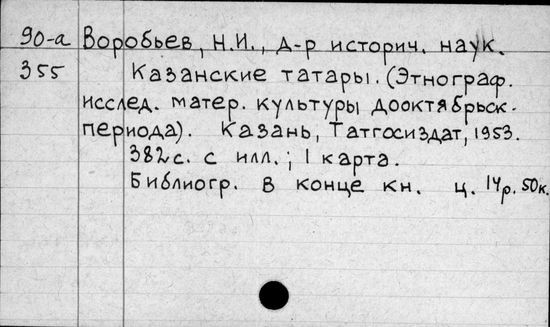 90-а Воробьев, Н.И., д-р историч. наук.
355 Казанские татары. (Этнограф.
исслед. матер. культуры дооктябрьск.
периода). Казань, Татгосиздат, 1953.
382 с. с илл.; 1 карта.
Библиогр. в конце кн. ц. 14р. 50к.